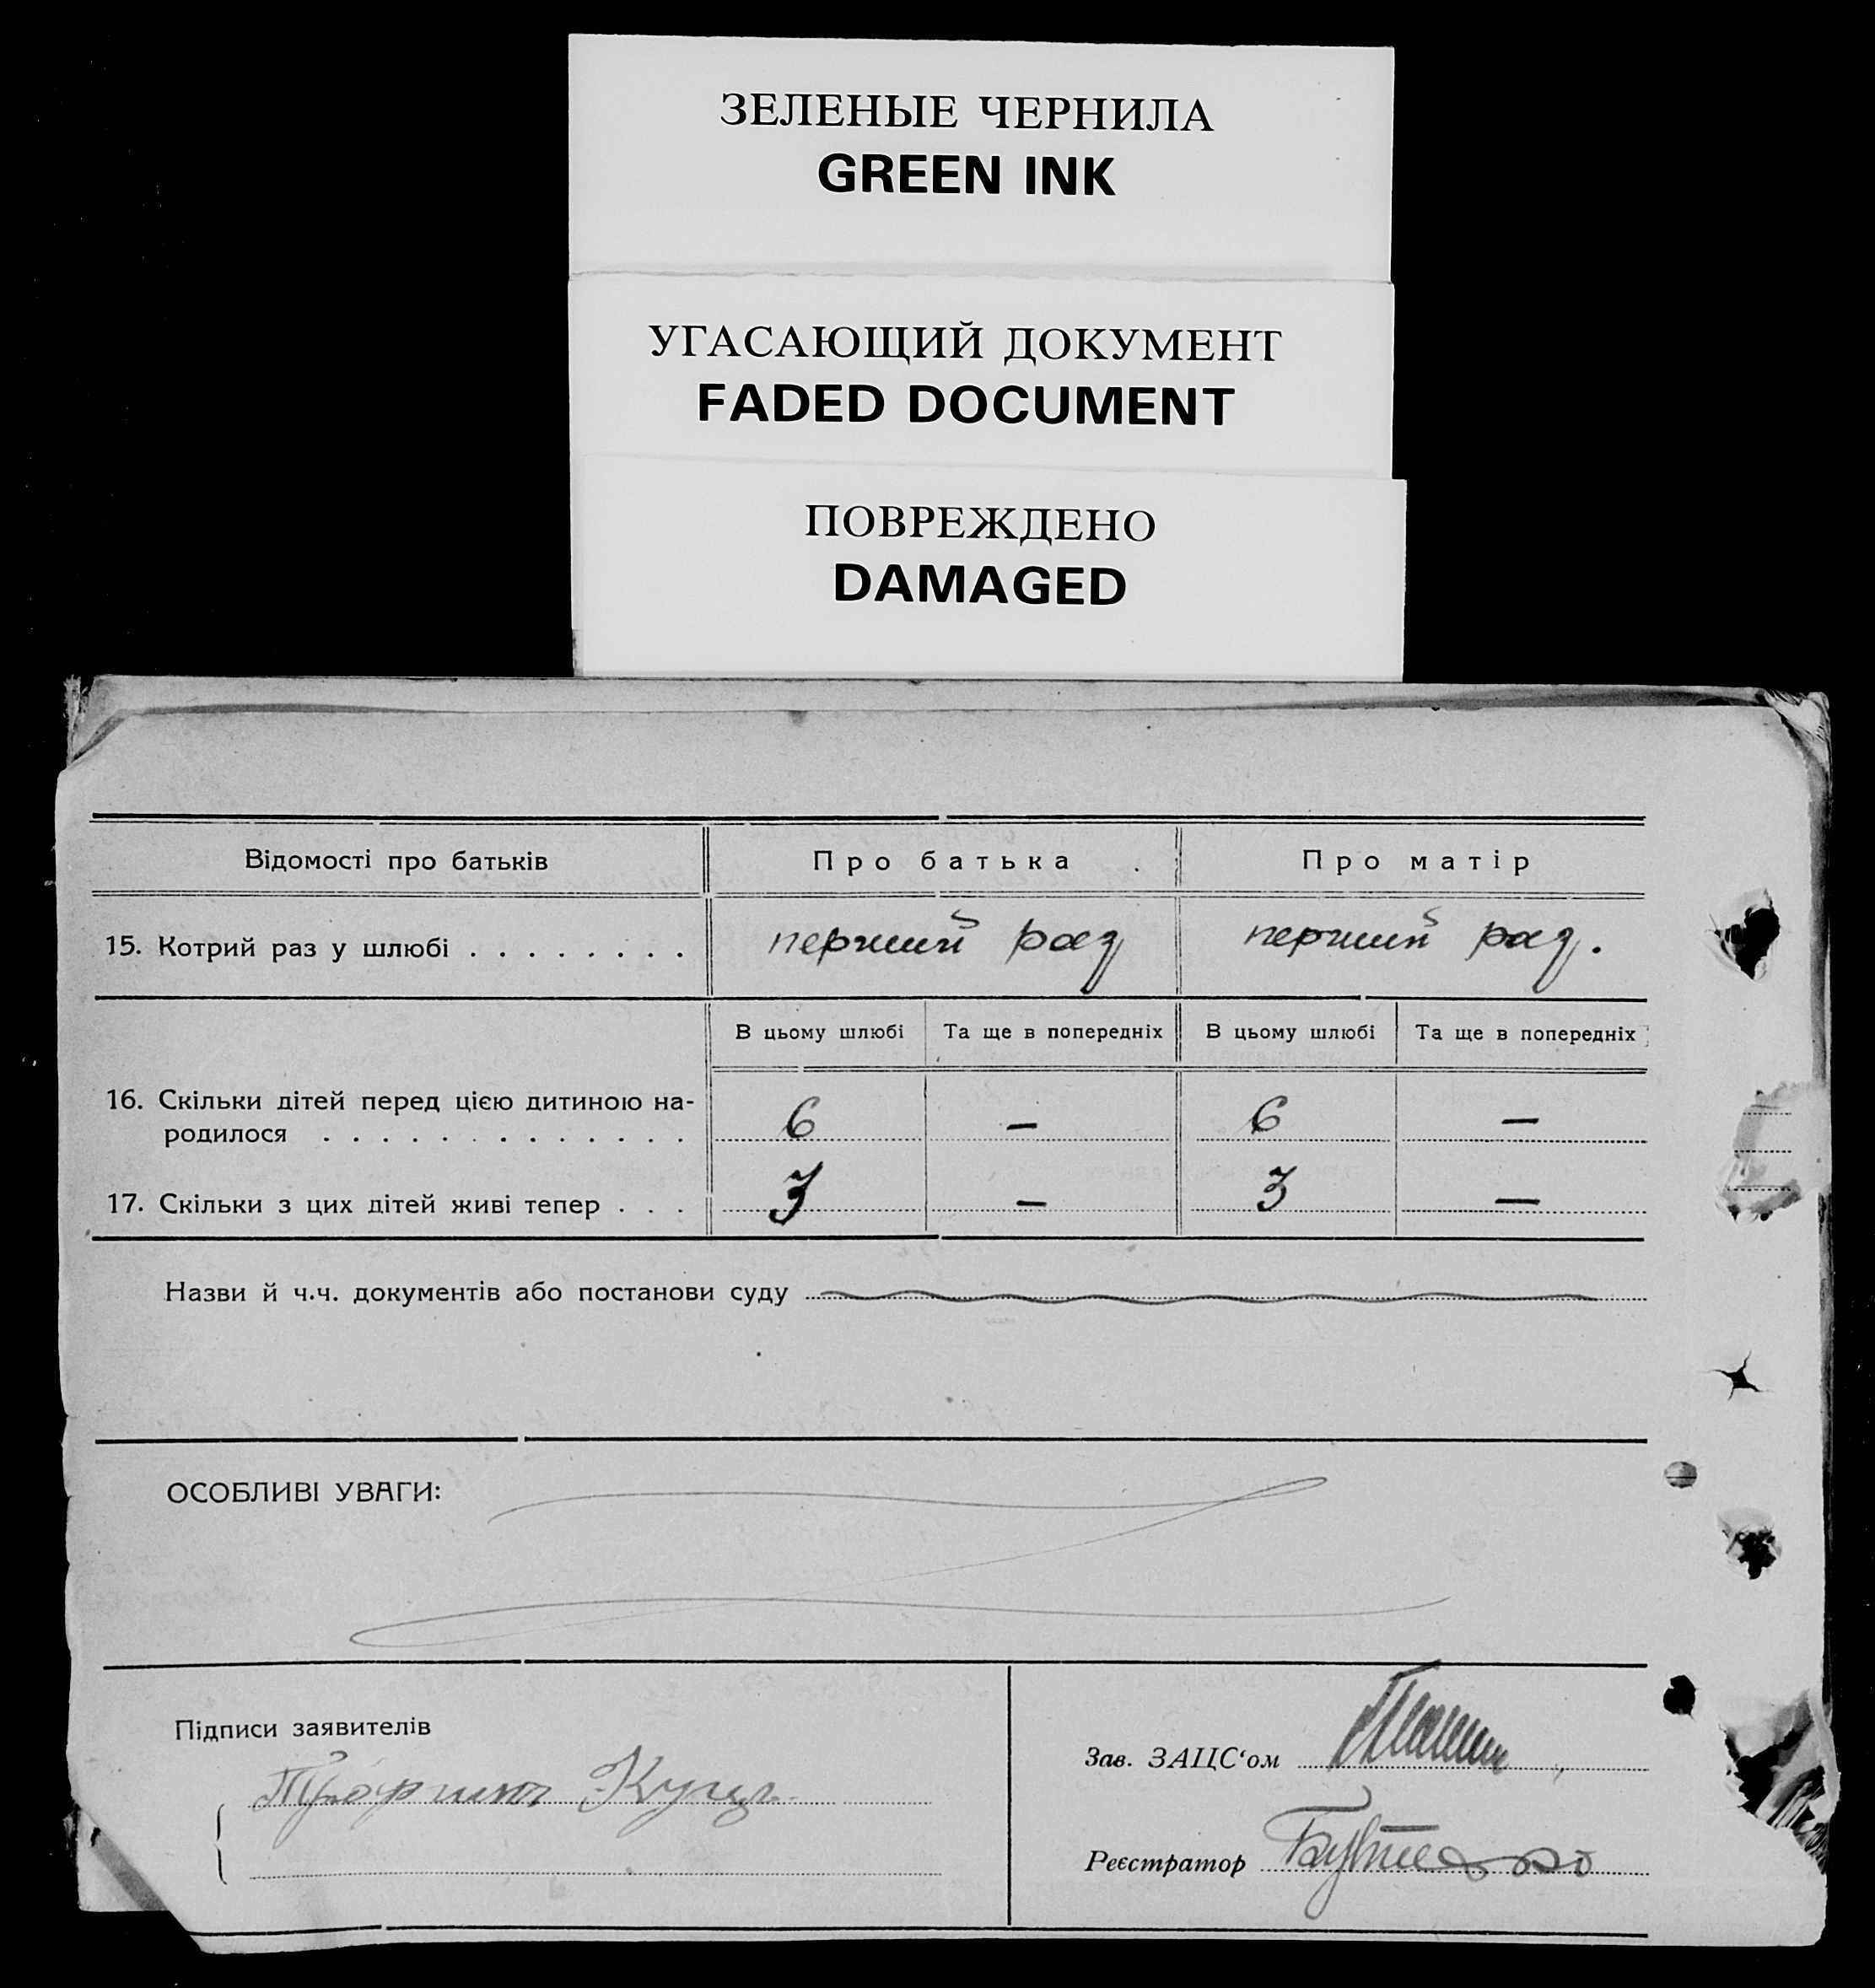 ЗЕЛЕНЫЕ ЧЕРНИЛА
GREEN INK
УГАСАЮЩИЙ ДОКУМЕНТ
FADED DOCUMENT
ПОВРЕЖДЕНО
DAMAGED
Відомості про батьків Про батька Про матір
15. Котрий раз у шлюбі . . . . . . . . перший раз перший раз.
В цьому шлюбі Та ще в попередніх В цьому шлюбі Та ще в попередніх
16. Скільки дітей перед цією дитиною на-
родилося . . . . . . . . . . . . . 6 — 6 —
17. Скільки з цих дітей живі тепер . . . 3 — 3 —
Назви й ч.ч. документів або постанови суду
ОСОБЛИВІ УВАГИ:
Підписи заявителів
Зав. ЗАЦС‘ом
Реєстратор